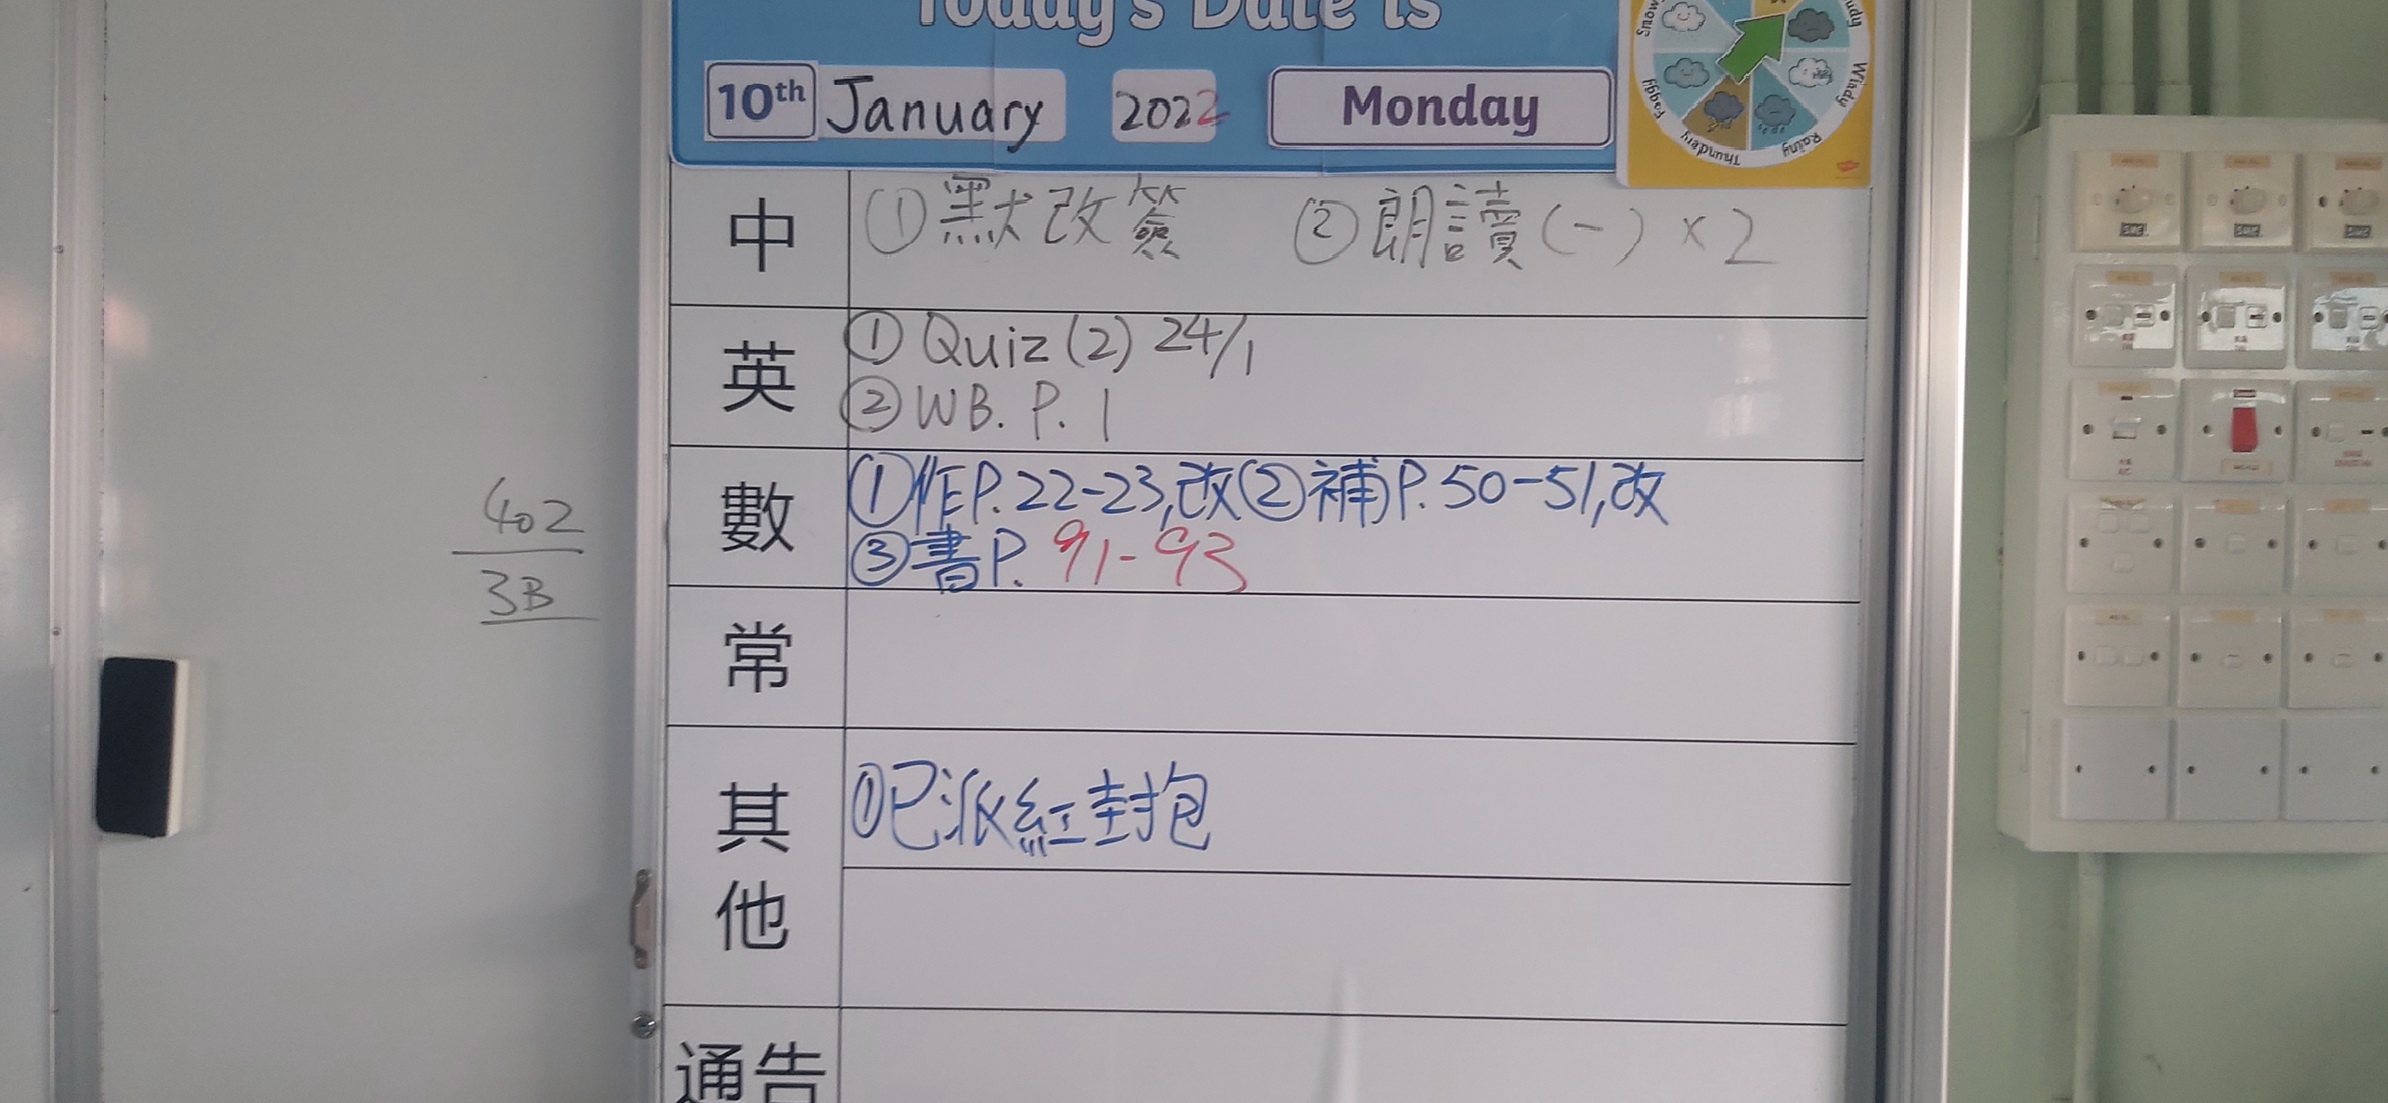 Today's Date is
10th January 2022 Monday
Snow
Windy
Rainy
Thundery
Foggy
中 ①默改簽 ②朗讀(一)×2
英 ① Quiz (2) 24/1
② WB. P. 1
數 ①作P.22-23,改②補P.50-51,改
③書P. 91-93
常
其他 ①已派紅封抱
通告
402
3B